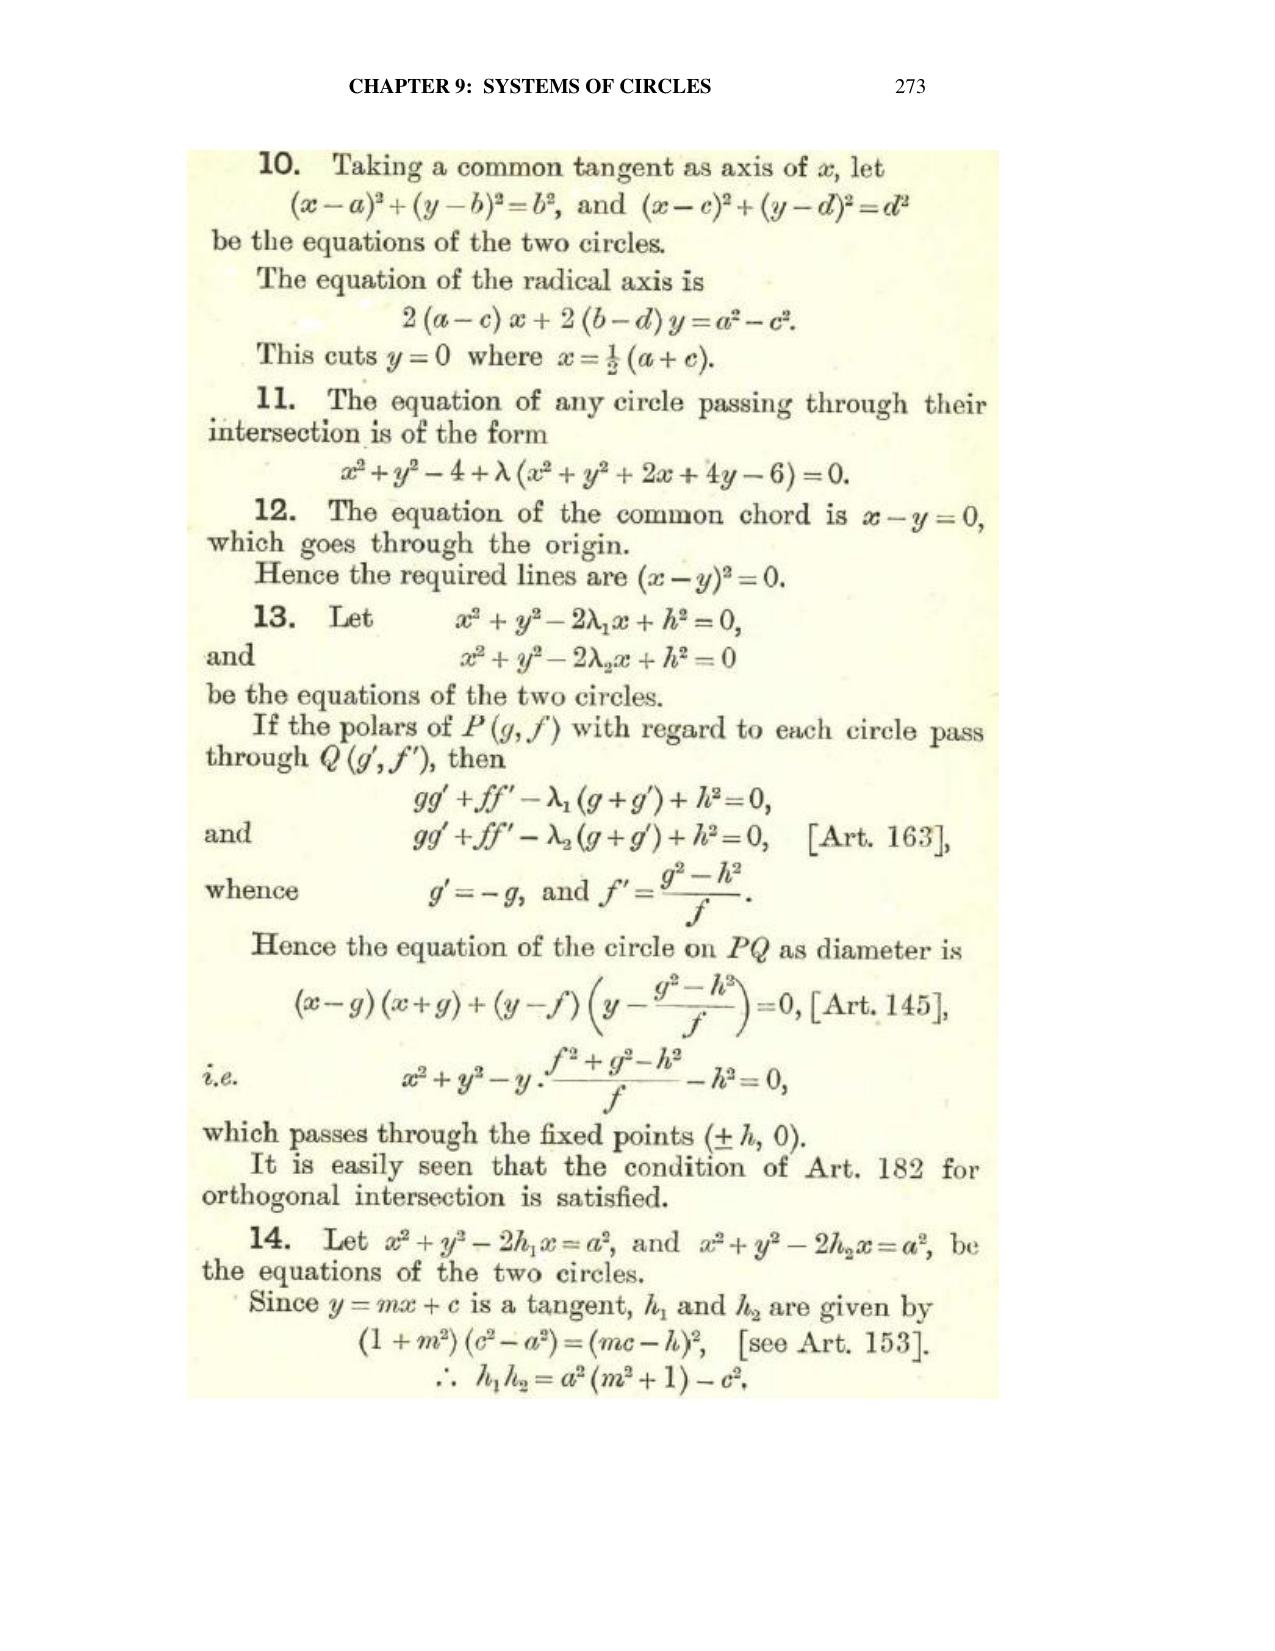 CHAPTER 9: SYSTEMS OF CIRCLES 273
10. Taking a common tangent as axis of x, let
(x – a)² + (y – b)² = b², and (x – c)² + (y – d)² = d²
be the equations of the two circles.
The equation of the radical axis is
2 (a – c) x + 2 (b – d) y = a² – c².
This cuts y = 0 where x = ½ (a + c).
11. The equation of any circle passing through their
intersection is of the form
x² + y² – 4 + λ (x² + y² + 2x + 4y – 6) = 0.
12. The equation of the common chord is x – y = 0,
which goes through the origin.
Hence the required lines are (x – y)² = 0.
13. Let x² + y² – 2λ₁x + h² = 0,
and x² + y² – 2λ₂x + h² = 0
be the equations of the two circles.
If the polars of P (g, f) with regard to each circle pass
through Q (g′, f′), then
gg′ + ff′ – λ₁ (g + g′) + h² = 0,
and gg′ + ff′ – λ₂ (g + g′) + h² = 0, [Art. 163],
whence g′ = – g, and f′ = (g² – h²)/f.
Hence the equation of the circle on PQ as diameter is
(x – g) (x + g) + (y – f) (y – (g² – h²)/f) = 0, [Art. 145],
i.e. x² + y² – y . (f² + g² – h²)/f – h² = 0,
which passes through the fixed points (± h, 0).
It is easily seen that the condition of Art. 182 for
orthogonal intersection is satisfied.
14. Let x² + y² – 2h₁x = a², and x² + y² – 2h₂x = a², be
the equations of the two circles.
Since y = mx + c is a tangent, h₁ and h₂ are given by
(1 + m²) (c² – a²) = (mc – h)², [see Art. 153].
∴ h₁h₂ = a² (m² + 1) – c².